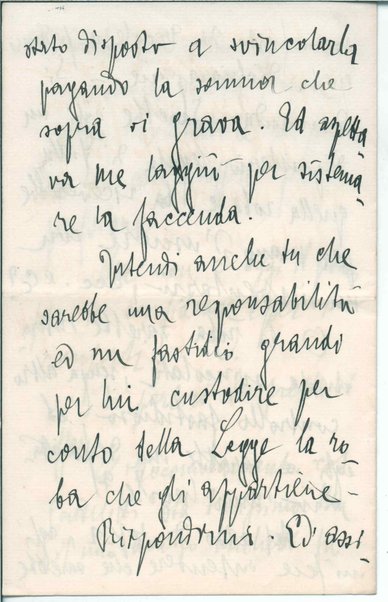 stato disposto a svincolarla
pagando la somma che
sopra vi grava. Ed aspetta-
va me laggiù per sistema-
re la faccenda.
Intendi anche tu che
sarebbe una responsabilità
ed un fastidio grande
per lui custodire per
conto della Legge la ro-
ba che gli appartiene -
Rispondimi. Ed assi-